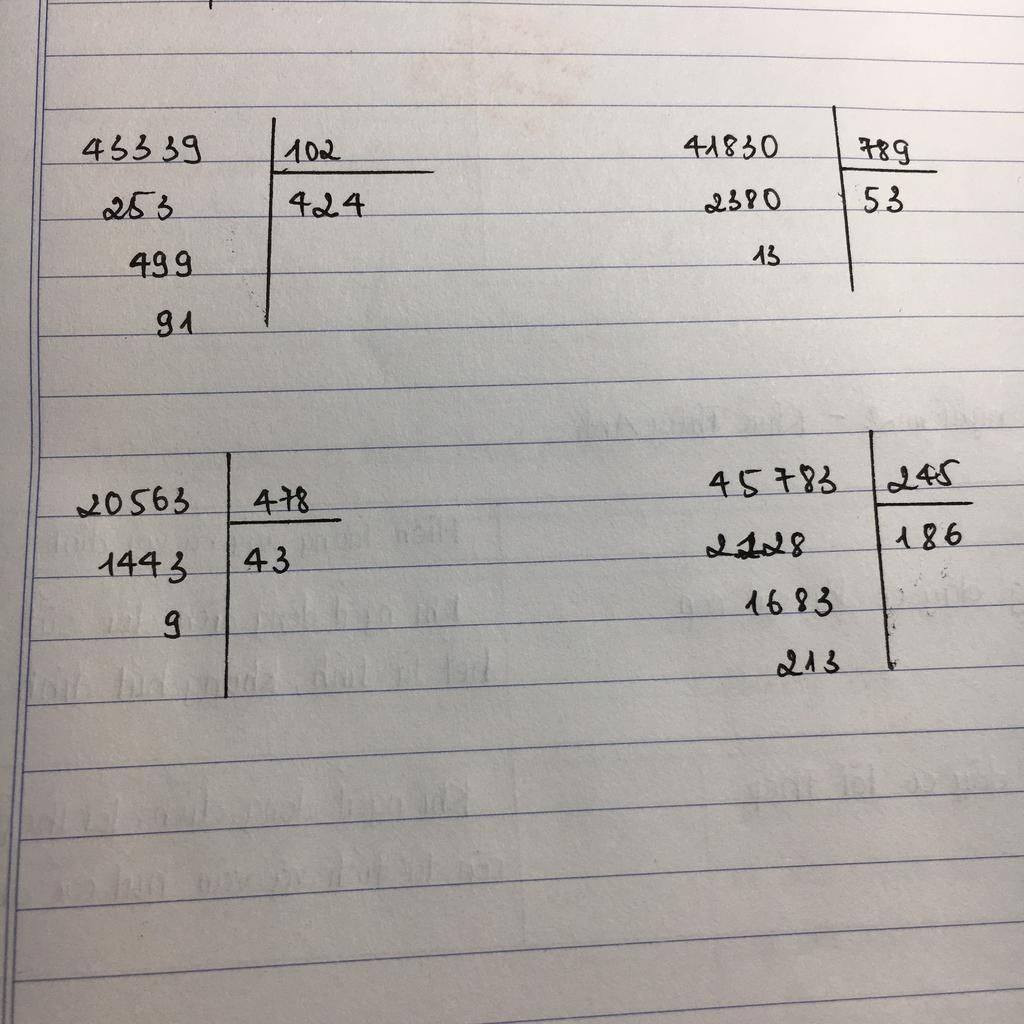 43339 102 41830 789
253 424 2380 53
499 13
91
20563 478 45783 245
1443 43 2128 186
9 1683
213